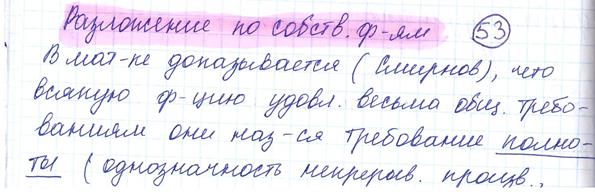 Разложение по собств. ф-ям 53
В мат-ке доказывается (Смирнов), что
всякую ф-цию удовл. весьма общ. требо-
ваниям они наз-ся требование полно-
ты (однозначность непрерыв. произв..